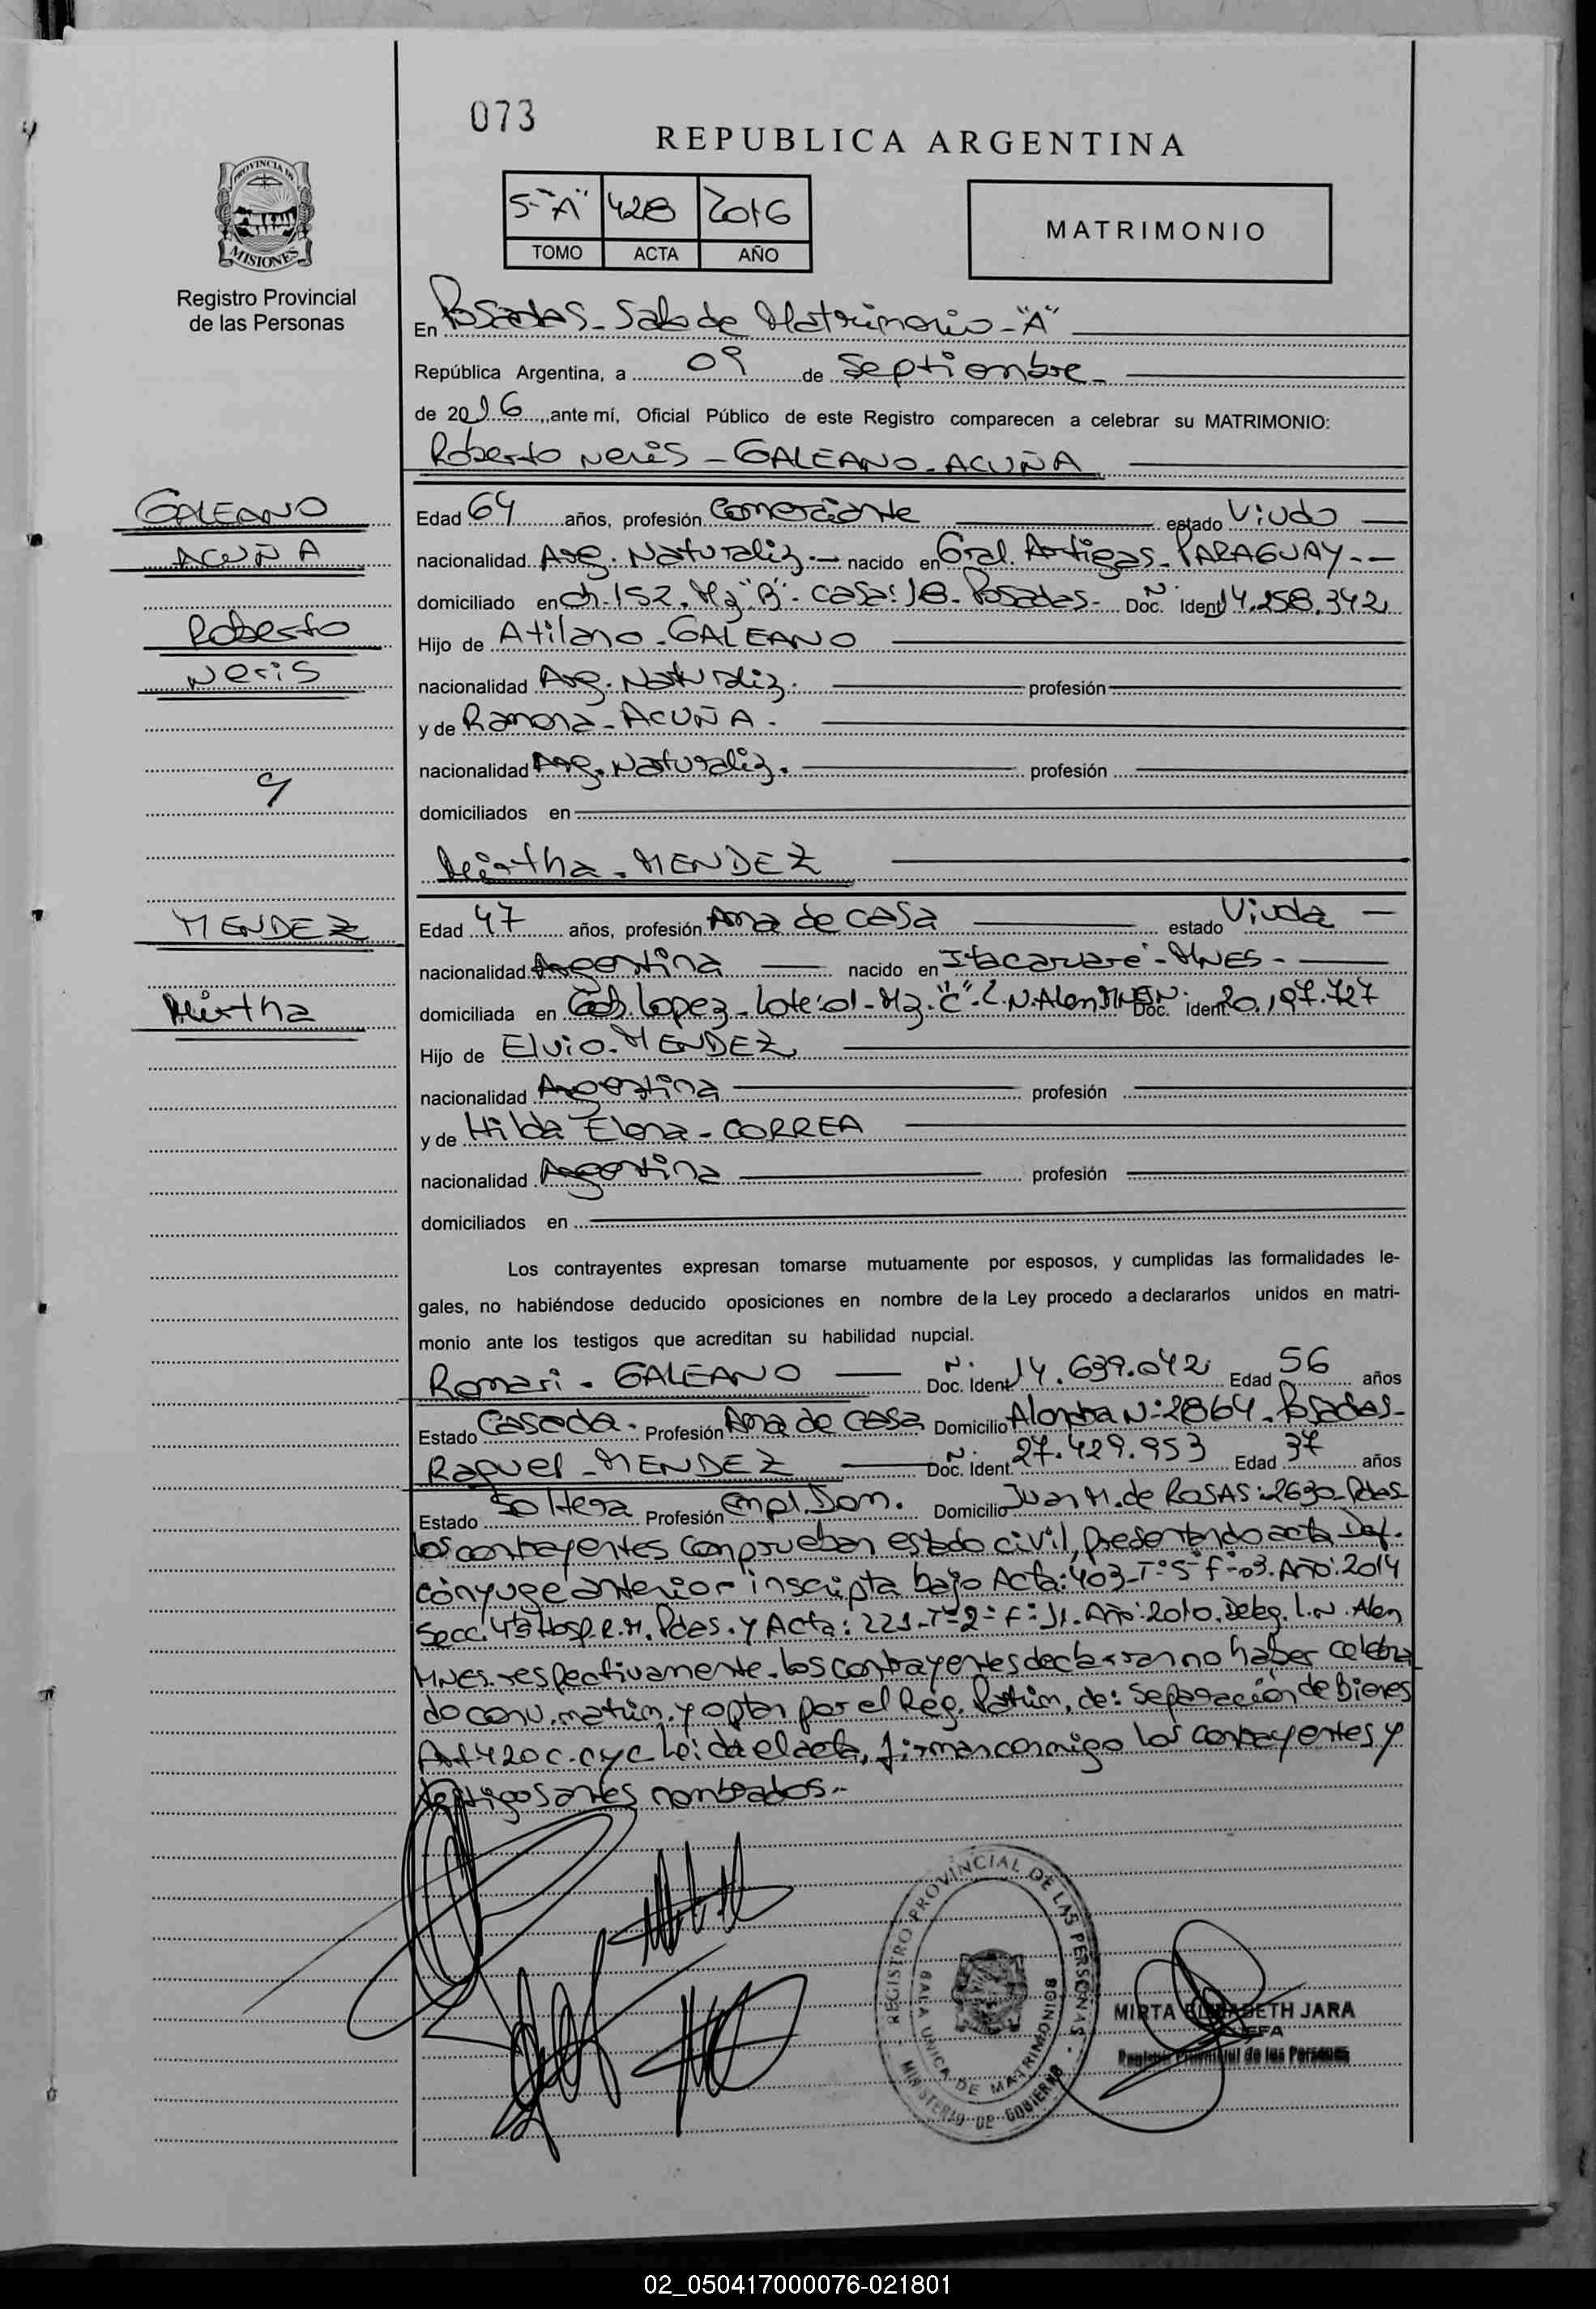 073
REPUBLICA ARGENTINA
5-"A" 428 2016
TOMO ACTA AÑO
MATRIMONIO
PROVINCIA DE
MISIONES
Registro Provincial
de las Personas
En Posadas - Sala de Matrimonio - "A"
República Argentina, a 09 de Septiembre -
de 2016, ante mí, Oficial Público de este Registro comparecen a celebrar su MATRIMONIO:
Roberto Neris - GALEANO - ACUÑA
GALEANO
ACUÑA
Roberto
Neris
y
MENDEZ
Mirtha
Edad 64 años, profesión Comerciante estado Viudo
nacionalidad Arg. Naturaliz. - nacido en Gral. Artigas - PARAGUAY - -
domiciliado en Ch. 152. Mz "B" - casa: 18 - Posadas - Doc. Ident N: 14.258.342
Hijo de Atilano - GALEANO
nacionalidad Arg. Naturaliz. profesión
y de Ramona - ACUÑA.
nacionalidad Arg. Naturaliz. profesión
domiciliados en
Mirtha - MENDEZ
Edad 47 años, profesión Ama de casa estado Viuda -
nacionalidad Argentina nacido en Itacaruaré - MNES -
domiciliada en Gob. Lopez - Lote: 01 - Mz. "C". L.N. Alem MNES Doc. Ident. N: 20.197.727
Hijo de Elvio - MENDEZ
nacionalidad Argentina profesión
y de Hilda Elena - CORREA
nacionalidad Argentina profesión
domiciliados en
Los contrayentes expresan tomarse mutuamente por esposos, y cumplidas las formalidades le-
gales, no habiéndose deducido oposiciones en nombre de la Ley procedo a declararlos unidos en matri-
monio ante los testigos que acreditan su habilidad nupcial.
Romari - GALEANO Doc. Ident. N: 14.639.042 Edad 56 años
Estado Casada. Profesión Ama de casa Domicilio N: 2864 - Posadas -
Raquel - MENDEZ Doc. Ident. N: 27.429.953 Edad 37 años
Estado Soltera Profesión Empl. Dom. Domicilio Juan M. de ROSAS: 2630 - Pdas -
los contrayentes comprueban estado civil, presentando acta Def.
cónyuge anterior inscripta bajo Acta: 403 - T: 5 - F: 03. Año: 2014
Secc. 4ta Hosp. R.M. Pdas. y Acta: 221 - T: 2 - F: 11. Año: 2010. Deleg. L.N. Alem
MNES respectivamente. los contrayentes declaran no haber celebra
do conv. matrim. y optan por el Reg. Patrim. de: Separación de bienes
Art 420 C. CyC Leida el acta, firman conmigo los contrayentes y
testigos antes nombrados.-
REGISTRO PROVINCIAL DE LAS PERSONAS
SALA UNICA DE MATRIMONIOS
MINISTERIO DE GOBIERNO
MIRTA ELIZABETH JARA
JEFA
Registro Provincial de las Personas
02_050417000076-021801